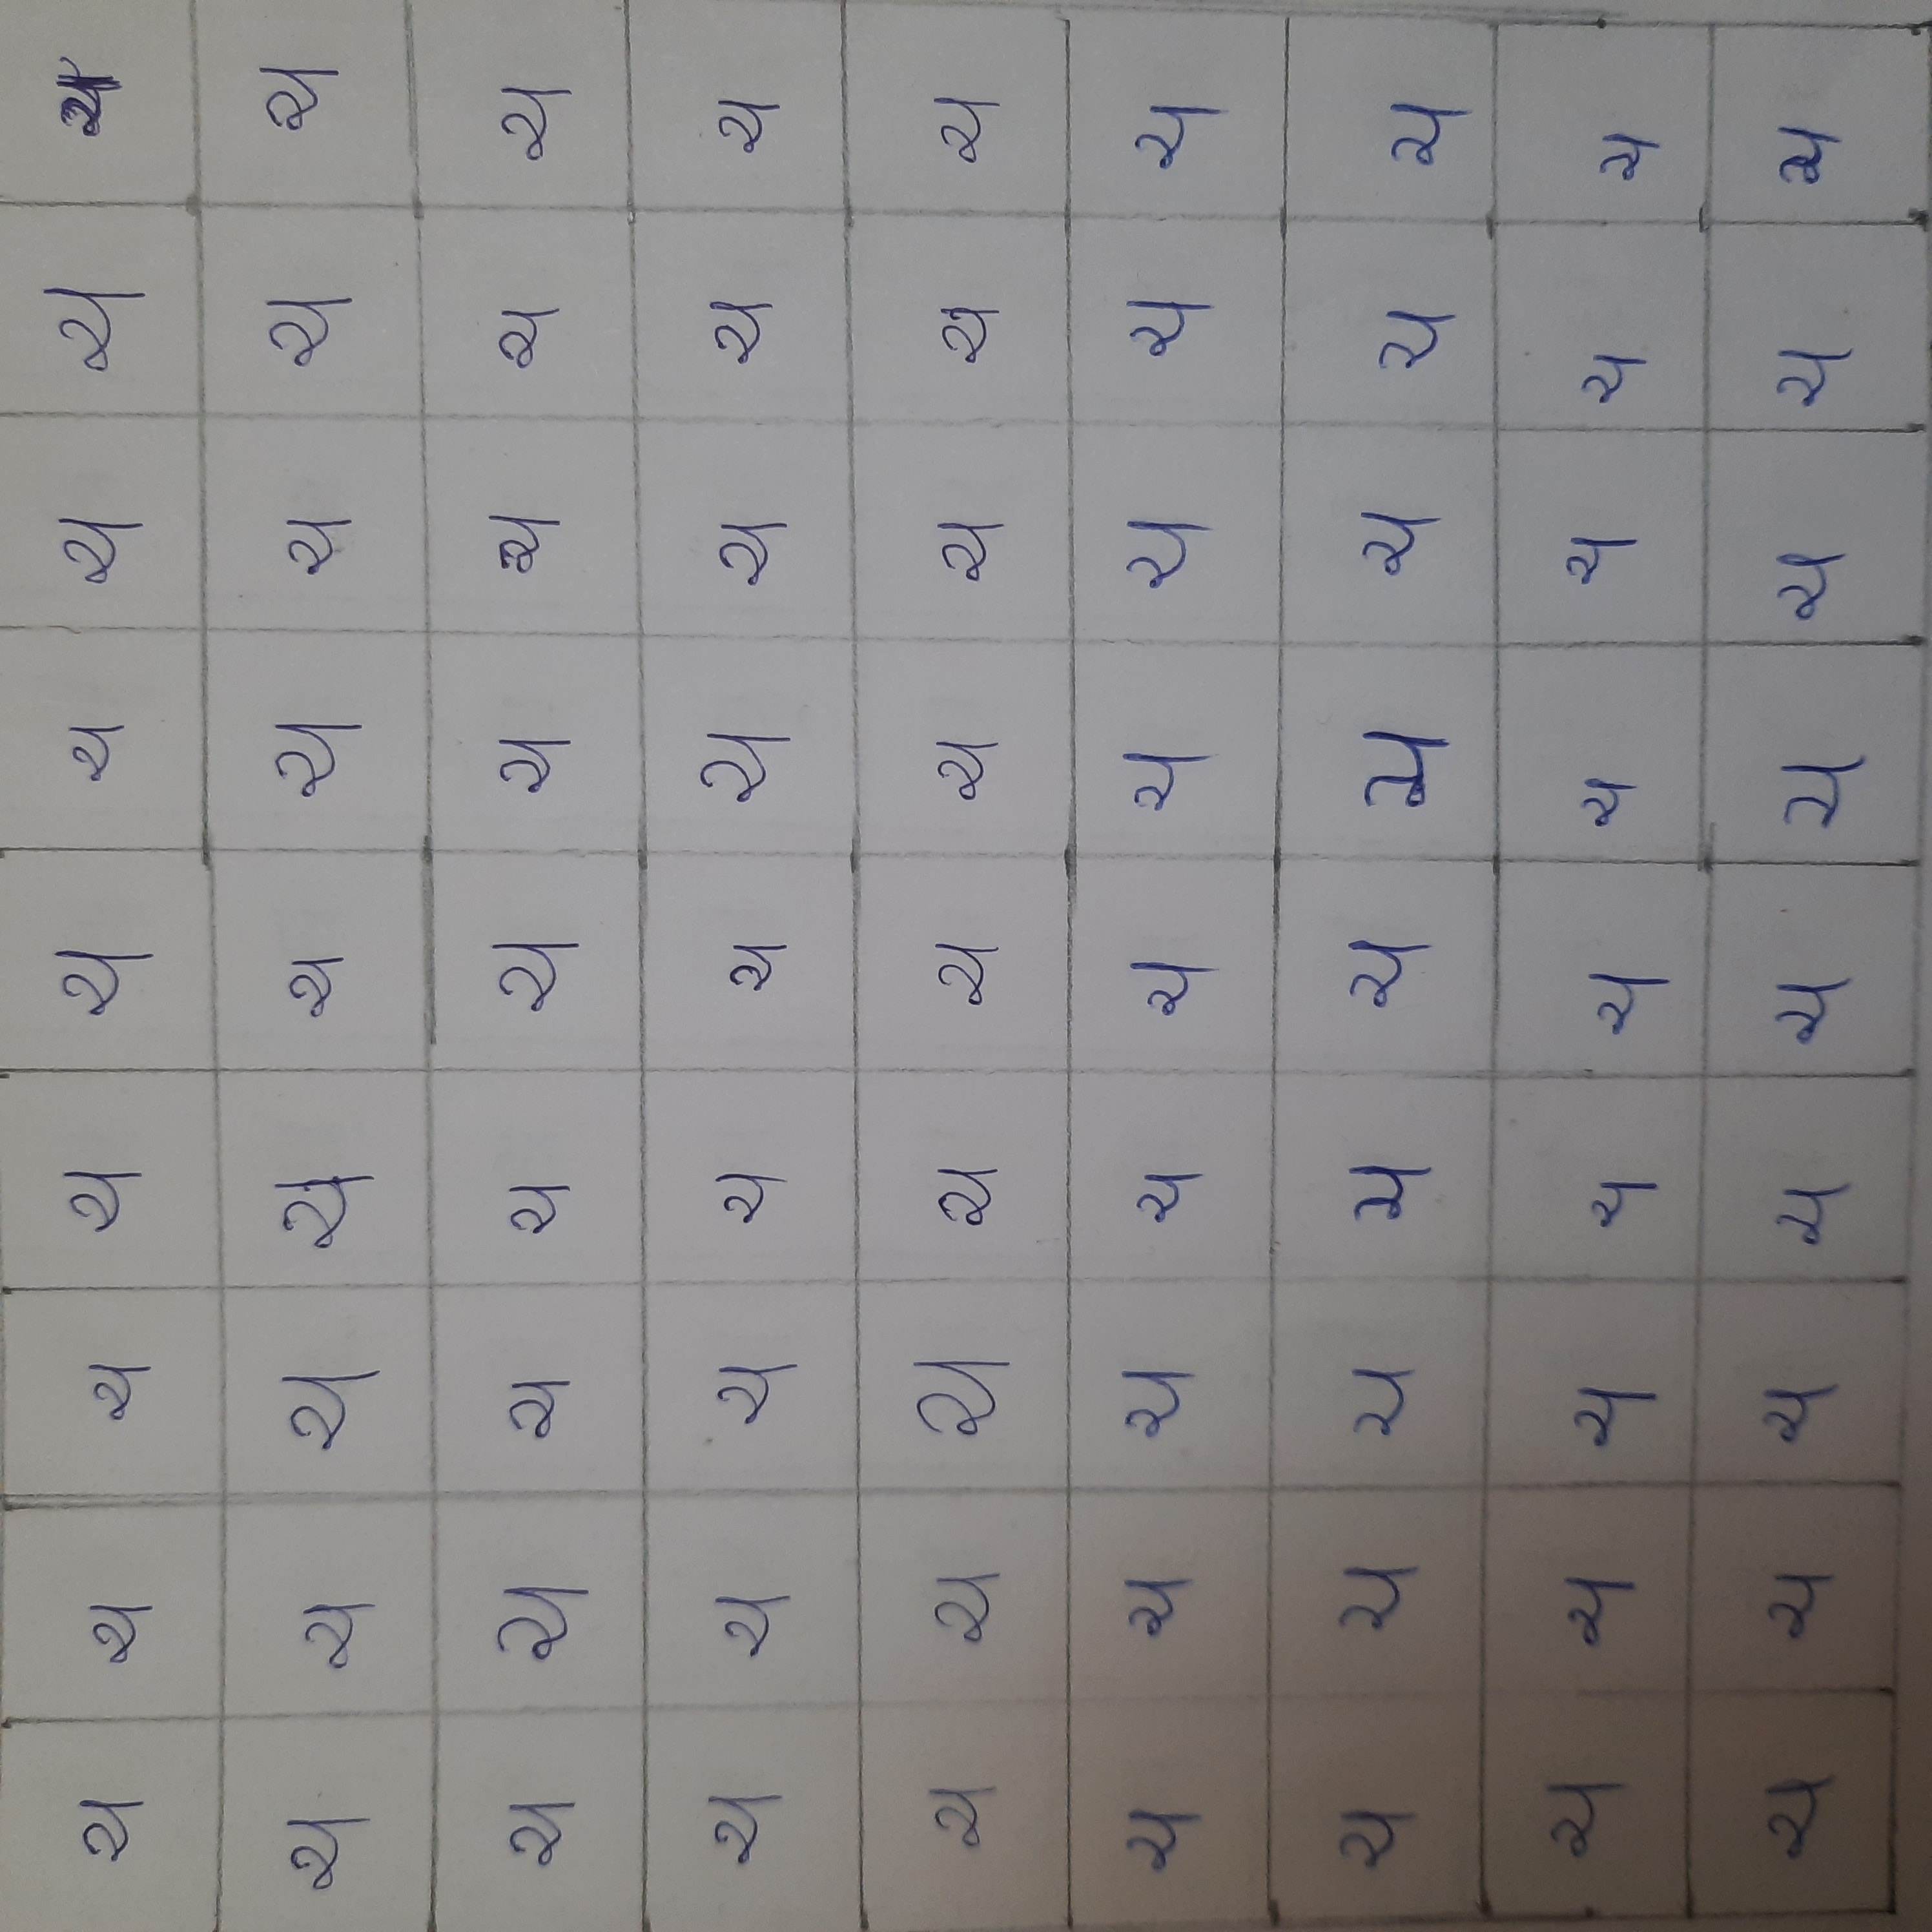 ચ ચ ચ ચ ચ ચ ચ ચ ચ
ચ ચ ચ ચ ચ ચ ચ ચ ચ
ચ ચ ચ ચ ચ ચ ચ ચ ચ
ચ ચ ચ ચ ચ ચ ચ ચ ચ
ચ ચ ચ ચ ચ ચ ચ ચ ચ
ચ ચ ચ ચ ચ ચ ચ ચ ચ
ચ ચ ચ ચ ચ ચ ચ ચ ચ
ચ ચ ચ ચ ચ ચ ચ ચ ચ
ચ ચ ચ ચ ચ ચ ચ ચ ચ